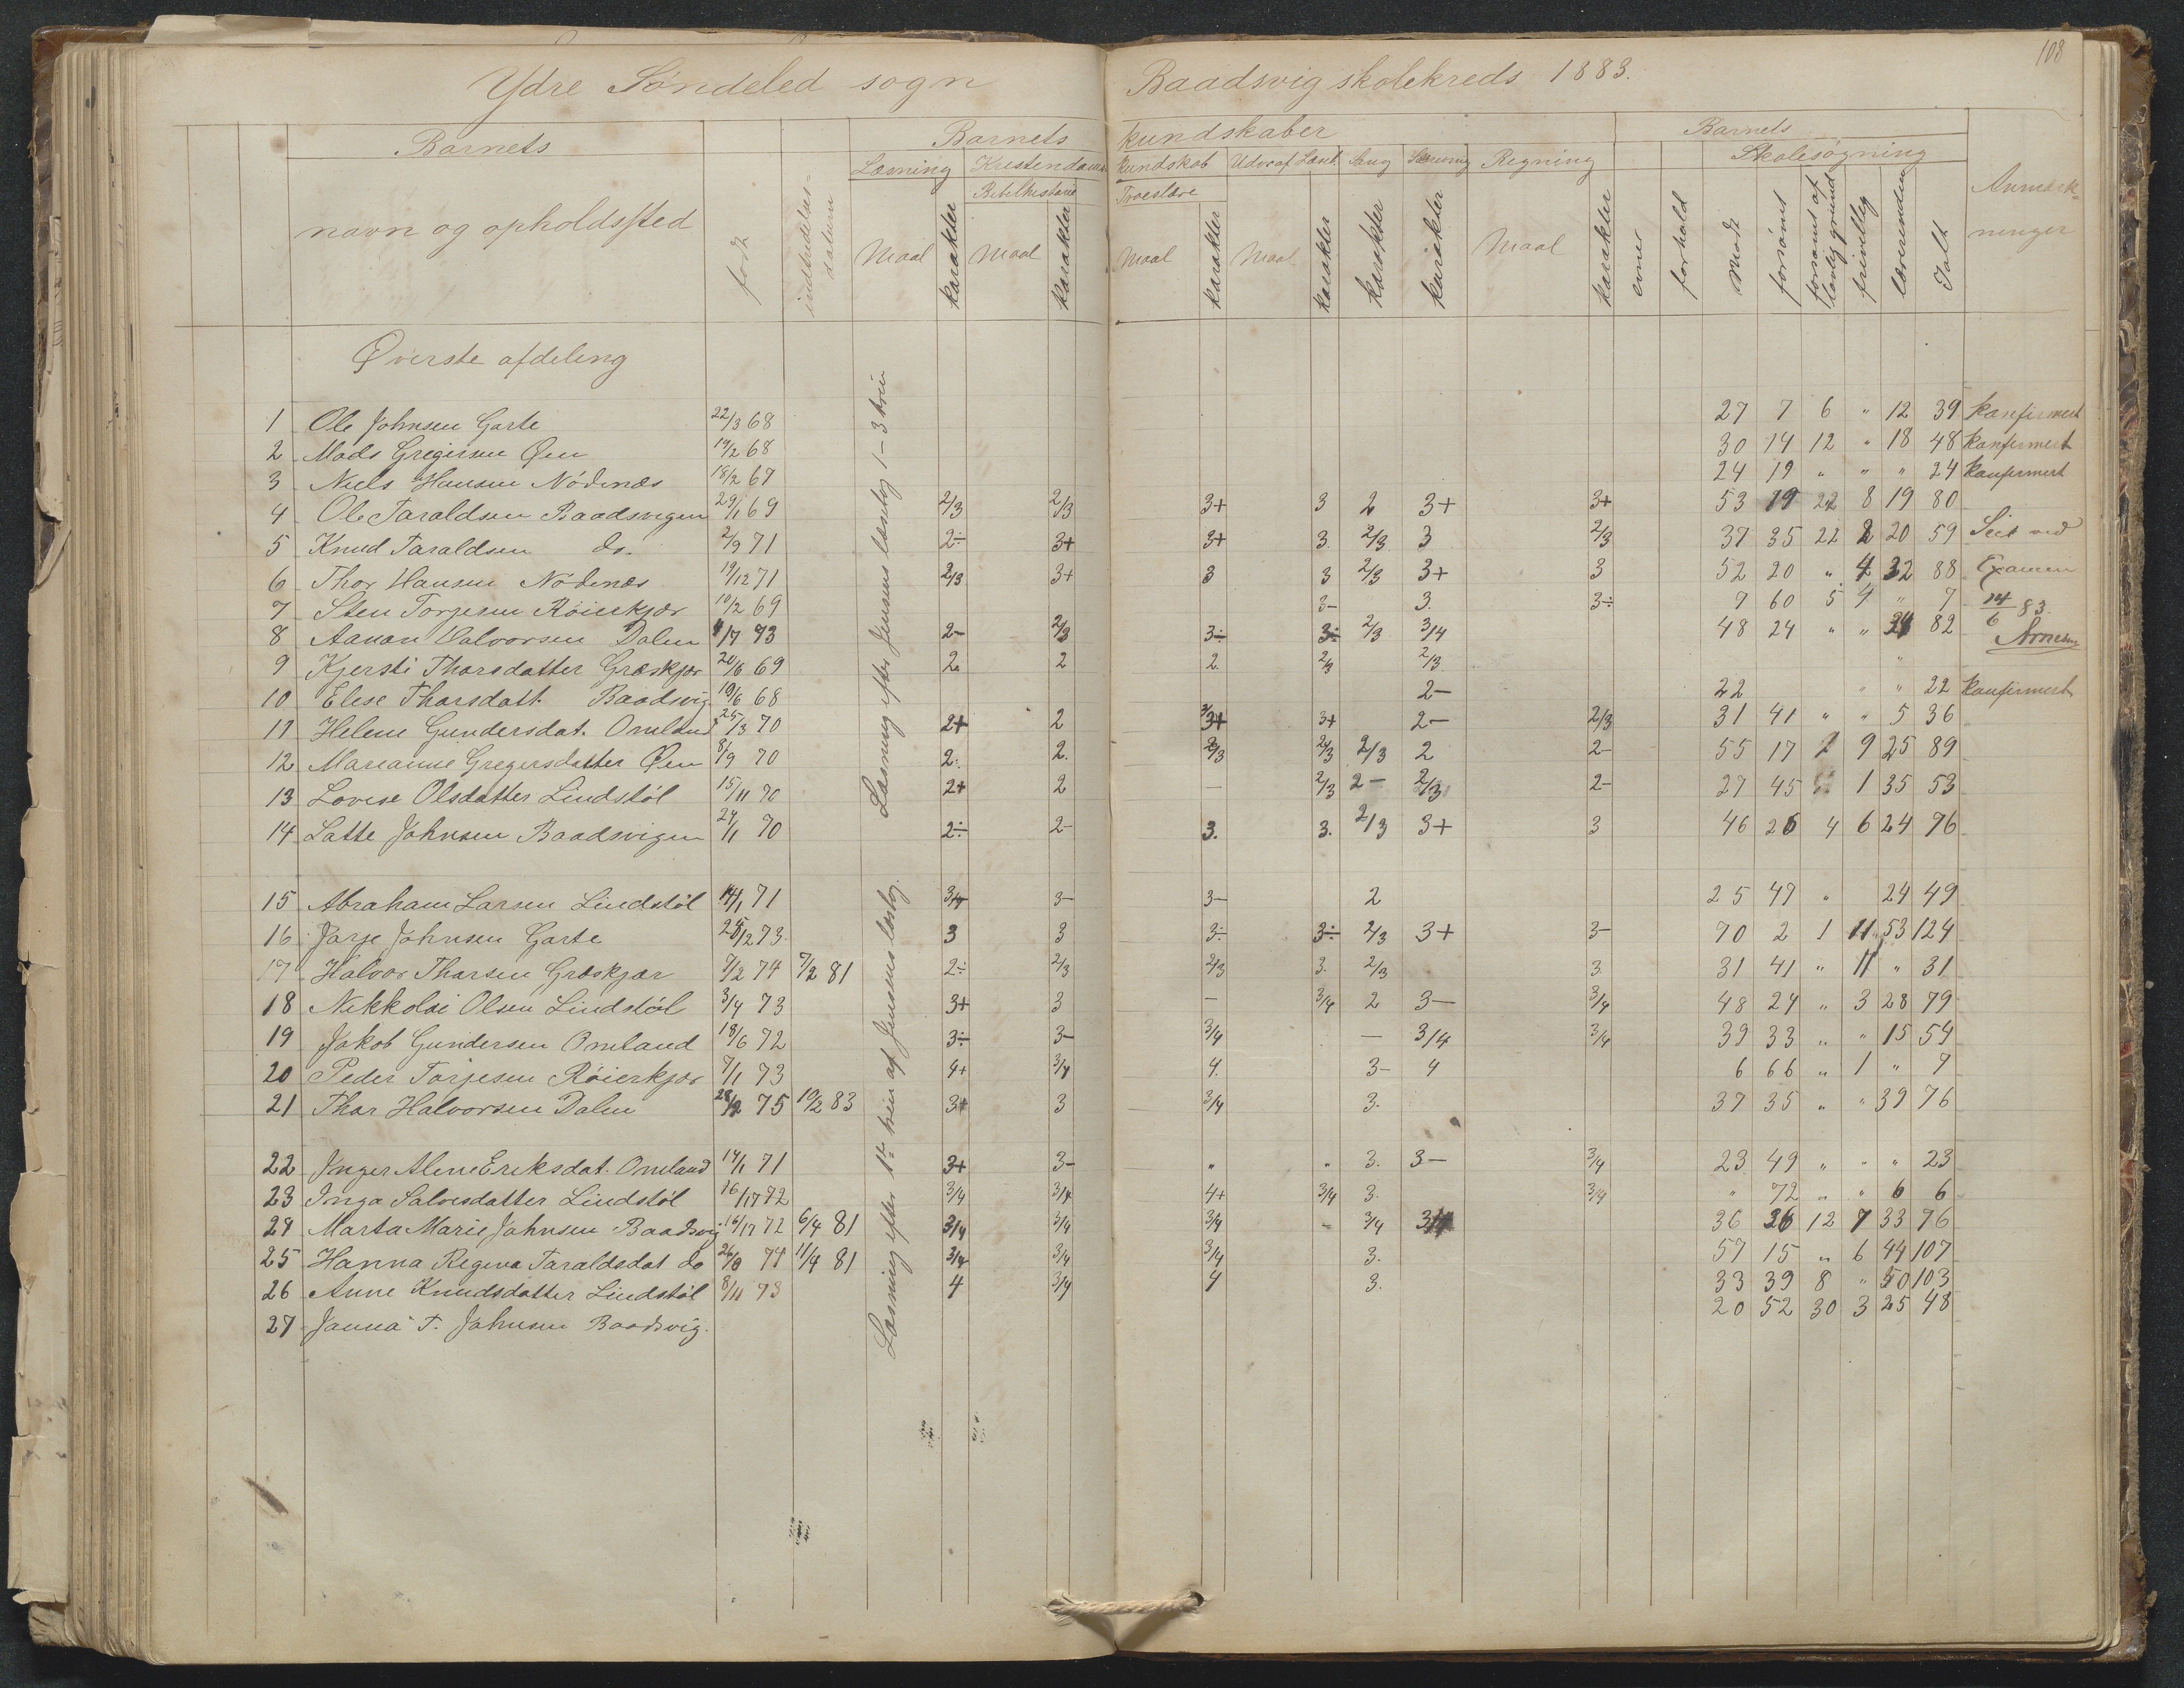 108
Ydre Söndeled sogn Baadsvig skolekreds 1883.
Barnets Barnets kundskaber Barnets
Læsning Kristendoms kundskab Udv. af Læseb. Sang Skrivning Regning Skolesøgning
Bibelhistorie Troeslære
navn og opholdssted født indtrædelses-datum Maal karakter Maal karakter Maal karakter Maal karakter karakter karakter Maal karakter evner forhold Mødt forsømt forsømt af lovlig grund frivillig Ialt Anmærk-ninger
Øverste afdeling
Læsning efter Jensens læsebog 1-3 trin
1 Ole Johnsen Garte 22/3 68 27 7 6 " 12 39 Konfirmert
2 Mads Gregersen Øen 19/2 68 30 14 12 " 18 48 Konfirmert
3 Niels Hansen Nødenæs 18/2 67 24 19 " " " 24 Konfirmert
4 Ole Taraldsen Baadsvigen 29/1 69 2/3 2/3 3+ 3 2 3+ 3+ 53 19 22 8 19 80
5 Knud Taraldsen do. 2/9 71 2÷ 3+ 3+ 3. 2/3 3 2/3 37 35 22 2 20 59 Seet ved
6 Thor Hansen Nødenæs 19/12 71 2/3 3+ 3 3 2/3 3+ 3 52 20 " 4 32 88 Examen
7 Sten Torjesen Røierkjær 10/2 69 3- 3. 3÷ 9 60 5 4 " 7 14/6 83.
8 Aanon Halvorsen Dalen 4/7 73 2- 2/3 3÷ 3÷ 2/3 3/4 48 24 " " 34 82
9 Kjersti Thorsdatter Græskjær 20/6 69 2 2 2. 2/3 2/3 "
10 Elese Thorsdatt. Baadsvig 10/6 68 2- 22 " " 22 Konfirmert
11 Helene Gundersdat. Omland 25/3 70 2+ 2 3+ 3+ 2- 2/3 31 41 " " 5 36
12 Marianne Gregersdatter Øen 8/9 70 2. 2. 2/3 2/3 2/3 2 2- 55 17 2 9 25 89
13 Lovise Olsdatter Lindstøl 15/11 70 2+ 2 - 2/3 2- 2/3 2- 27 45 1 35 53
14 Latte Johnsen Baadsvigen 24/1 70 2÷ 2- 3. 3. 2/3 3+ 3 46 26 4 6 24 76
Læsning efter 1ste trin af Jensens læsebog.
15 Abraham Larsen Lindstøl 14/1 71 3/4 3- 3- 2 25 47 " 24 49
16 Jørje Johnsen Garte 28/12 73. 3 3 3÷ 3÷ 2/3 3+ 3- 70 2 1 11 53 124
17 Halvor Thorsen Græskjær 7/2 74 7/2 81 2÷ 2/3 2/3 3. 2/3 3. 31 41 " 11 " 31
18 Nekkolai Olsen Lindstøl 3/4 73 3+ 3 - 3/4 2 3- 3/4 48 24 " 3 28 79
19 Jakob Gundersen Omland 18/6 72 3÷ 3- 3/4 - 3/4 3/4 39 33 " " 15 54
20 Peder Torjesen Røierkjær 9/1 73 4+ 3/4 4. 3- 4 6 66 " 1 " 7
21 Thor Halvorsen Dalen 28/2 75 10/2 83 3+ 3 3/4 3. 37 35 " " 39 76
22 Inger Alene Eriksdat. Omland 14/1 71 3+ 3- " " 3. 3- 3/4 23 49 " " " 23
23 Inga Salvesdatter Lindstøl 16/11 72 3/4 3/4 4+ 3/4 3. 3/4 " 72 " " 6 6
24 Marta Marie Johnsen Baadsvig 16/11 72 6/4 81 3/4 3/4 3/4 - 3/4 3/4 36 36 12 7 33 76
25 Hanna Regina Taraldsdat do 26/8 74 11/4 81 3/4 3/4 3/4 3. 57 15 " 6 44 107
26 Anne Knudsdatter Lindstøl 8/11 73 4 3/4 4 3. 33 39 8 " 50 103
27 Janna T. Johnsen Baadsvig. 20 52 30 3 25 48